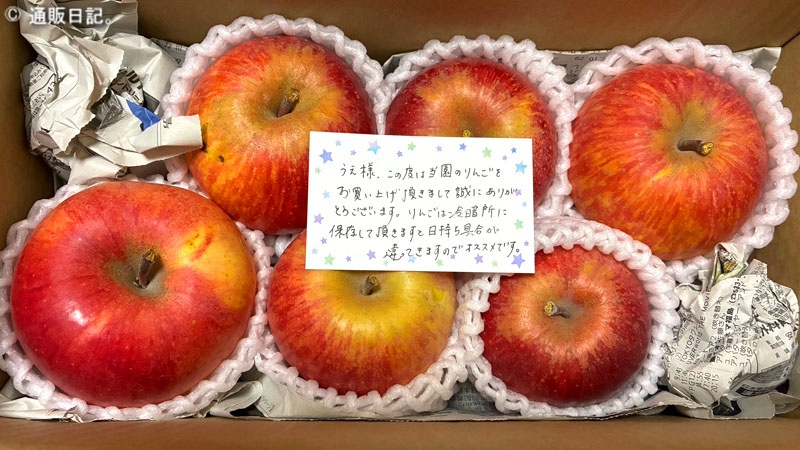 © 通販日記。
うえ様、この度は当園のりんごを
お買い上げ頂きまして誠にありが
とうございます。りんごは冷暗所に
保存して頂きますと日持ち具合が
違ってきますのでオススメです。